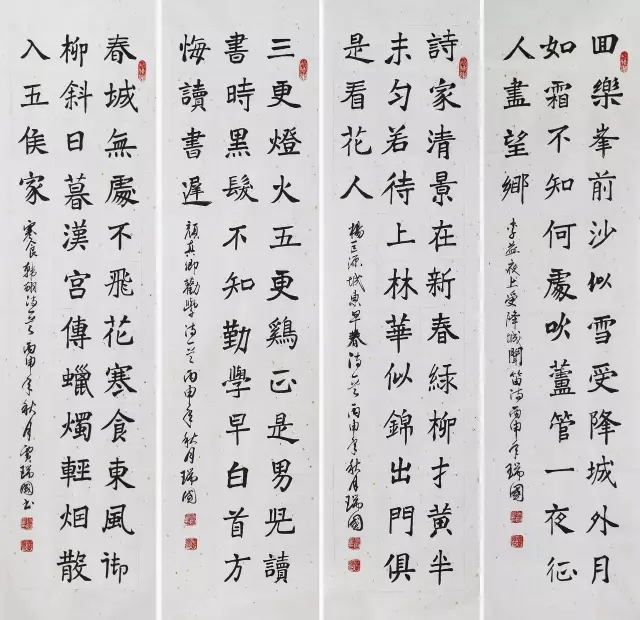 囬樂峯前沙似雪受降城外月
如霜不知何處吹蘆管一夜征
人盡望鄉
李益夜上受降城聞笛詩丙申年瑞國
詩家清景在新春綠柳才黃半
未勻若待上林華似錦出門俱
是看花人
楊巨源城東早春詩一首丙申年秋月瑞國
三更燈火五更鷄正是男兒讀
書時黑髮不知勤學早白首方
悔讀書遲
顏真卿勸學詩一首丙申年秋月瑞國
春城無處不飛花寒食東風御
柳斜日暮漢宮傳蠟燭輕烟散
入五侯家
寒食韓翃詩一首丙申年秋月瑞國書